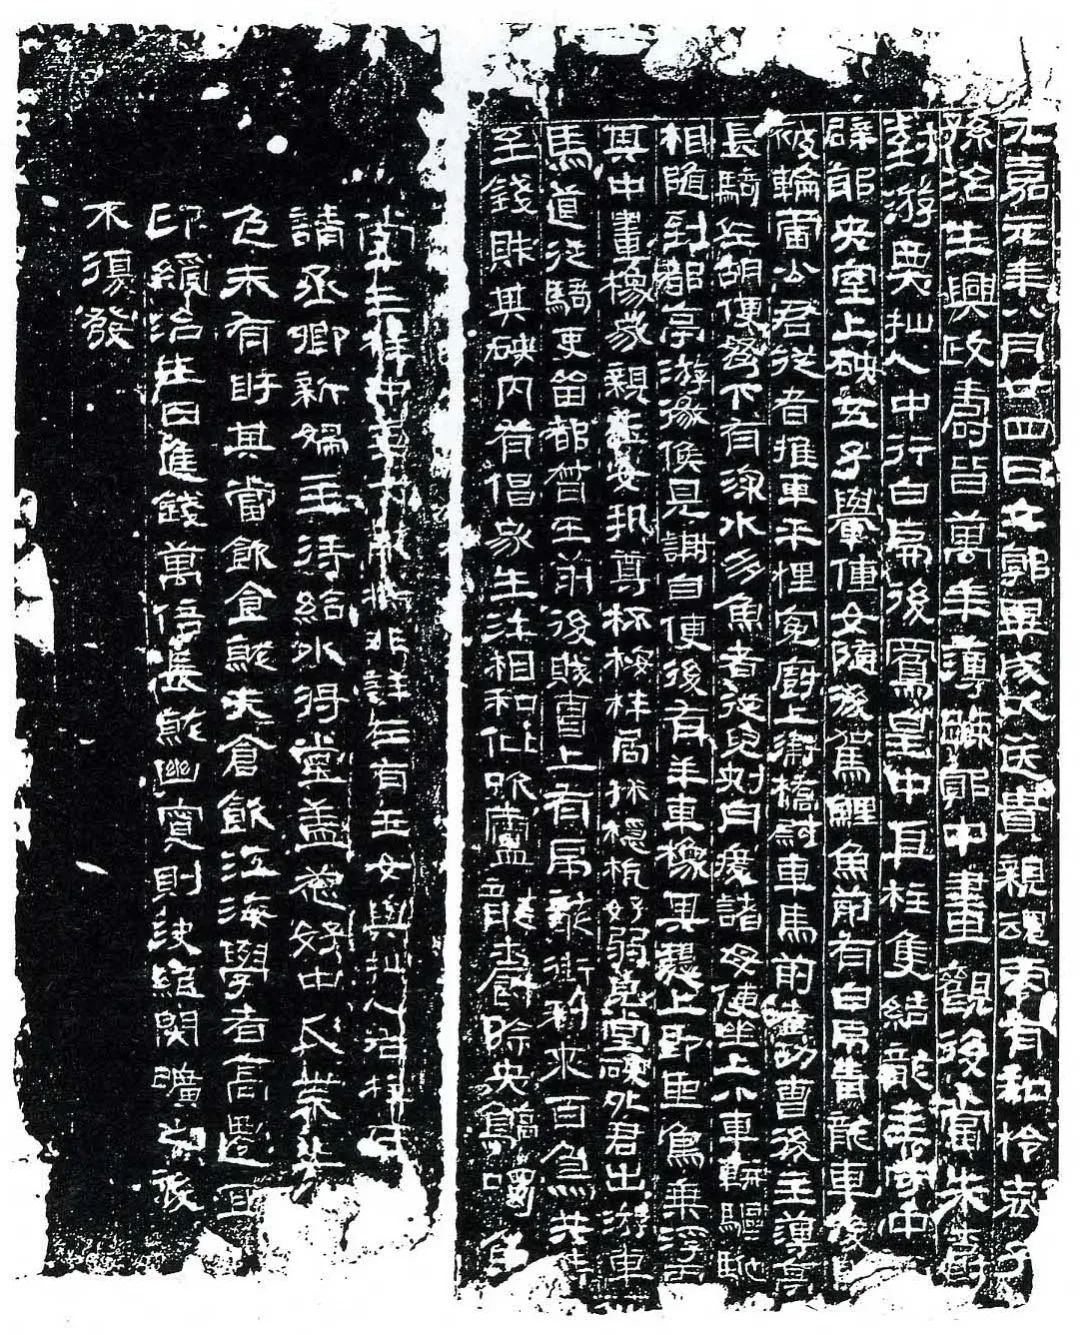 元嘉元年八月廿四日立郭畢成以送貴親魂零有知柃哀子
孫治生興政壽皆萬年薄踈郭中畫觀後當朱爵
對游㚇抇人中行白虎後鳳皇中直柱隻結龍主守中
辟邪夹室上硤五子轝僮女隨後駕鯉魚前有白虎青龍車後
被輪雷公君從者推車乎梩冤厨上衛橋尉車馬前者功曹後主簿亭
長騎左胡使弩下有深水多魚者從兒刺舟渡諸母使坐上小車軿驅馳
相隨到都亭游徼候見謝自便後有羊車橡其槥上即聖鳥乘浮雲
其中畫橡家親玉女執尊杯桉柈局秫穩杭好弱皃堂硤外君出游車
馬道從騎吏留都督在前後賊曹上有虎龍銜利來百鳥共持
至錢財其硤內有倡家生汙相和仳吹廬龍爵除央鶴噣魚
堂三柱中非詳左有玉女與抇人右柱
請丞卿新婦主待給水將堂蓋葱好中瓜葉上
包末有盱其當飲食就夫倉飲江海學者高遷宜
印綬治生日進錢萬倍長就幽冥則決絕閉曠之後
不復發